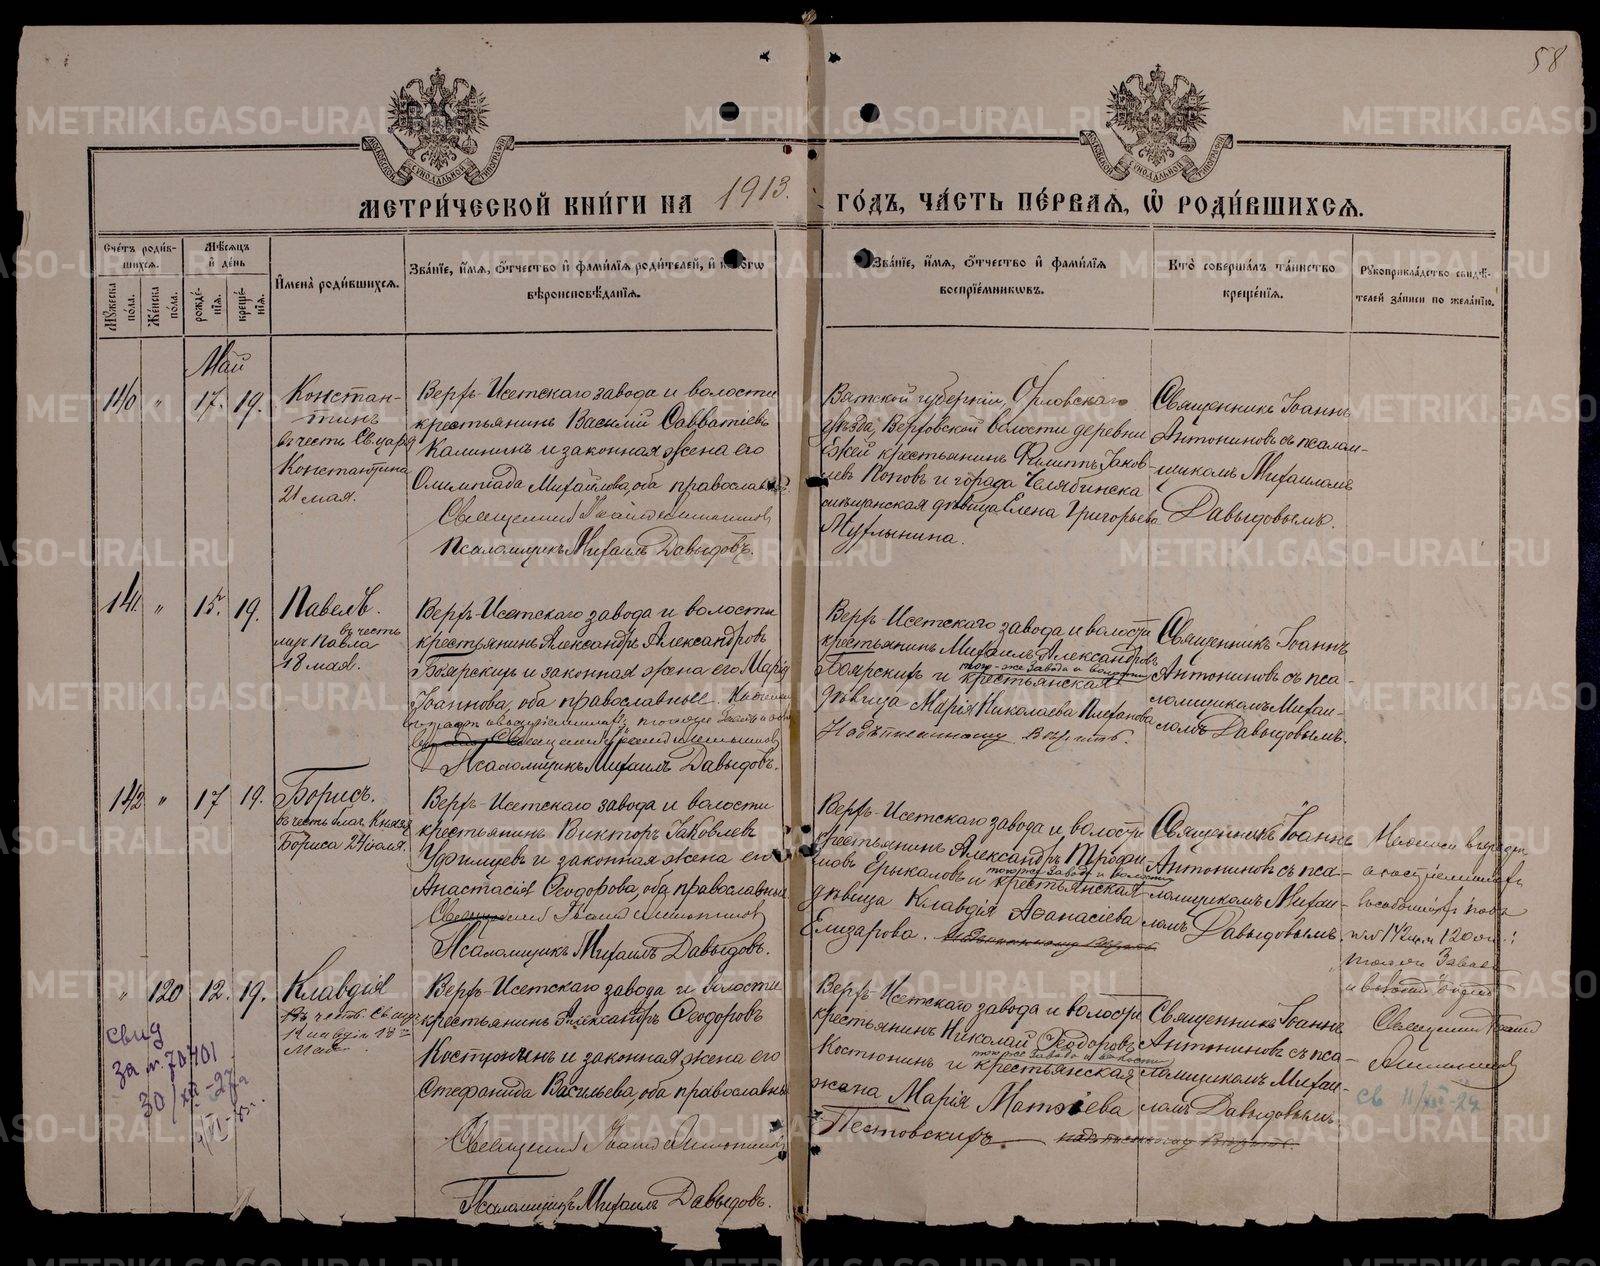 58
МЕТРИ́ЧЕСКОЙ КНИ́ГИ НА 1913. ГО́ДЪ, ЧА́СТЬ ПЕ́РВАѦ, Ѽ РОДИ́ВШИХСѦ.
Сче́тъ роди́в-
шихсѧ.
Мѣ́сѧцъ
и҆ де́нь
Мꙋ́жеска по́ла.
Же́нска по́ла.
рожде́-
нїѧ.
креще́-
нїѧ.
И҆мена̀ роди́вшихсѧ.
Зва́нїе, и҆́мѧ, ѻ҆́тчество и҆ фами́лїѧ роди́телей, и҆
вѣроисповѣ́данїѧ.
Зва́нїе, и҆́мѧ, ѻ҆́тчество и҆ фами́лїѧ
воспрїе́мникѡвъ.
Кто̀ соверша́лъ та́инство
креще́нїѧ.
Рꙋкоприкла́дство свидѣ́-
телей за́писи по жела́нїю.
Май
140 " 17. 19.
Констан-
тинъ
въ честь Св. царя
Константина
21 мая.
Верхъ-Исетскаго завода и волости
крестьянинъ Василій Савватіевъ
Калининъ и законная жена его
Олимпіада Михайлова, оба православные.
Священникъ Іоаннъ Антониновъ
Псаломщикъ Михаилъ Давыдовъ.
Вятской губерніи, Орловскаго
уѣзда, Верховской волости деревни
крестьянинъ Филиппъ Яков-
левъ Поповъ и города Челябинска
мѣщанская дѣвица Елена Григорьева
Священникъ Іоаннъ
Антониновъ съ псалом-
щикомъ Михаиломъ
Давыдовымъ.
141. " 15. 19.
Павелъ.
въ честь
муч. Павла
18 мая.
Верхъ-Исетскаго завода и волости
крестьянинъ Александръ Александровъ
Боярскихъ и законная жена его Марія
Іоаннова, оба православные.
Псаломщикъ Михаилъ Давыдовъ.
Верхъ-Исетскаго завода и волости
крестьянинъ Михаилъ Александровъ
того-же завода и волости
Боярскихъ и крестьянская
дѣвица Марія Николаева Плеханова
Надъписанному вѣрить.
Священникъ Іоаннъ
Антониновъ съ пса-
ломщикомъ Михаи-
ломъ Давыдовымъ.
142 " 17 19.
Борисъ.
въ честь благ. Князя
Бориса 24 іюля.
Верхъ-Исетскаго завода и волости
крестьянинъ Викторъ Яковлевъ
Удинцевъ и законная жена его
Анастасія Ѳеодорова, оба православные
Священникъ Іоаннъ Антониновъ
Псаломщикъ Михаилъ Давыдовъ.
Верхъ-Исетскаго завода и волости
крестьянинъ Александръ Трофи-
того-же завода и волости
мовъ Ерыкаловъ и крестьянская
дѣвица Клавдія Аѳанасіева
Елизарова.
Священникъ Іоаннъ
Антониновъ съ пса-
ломщикомъ Михаи-
ломъ Давыдовымъ.
" 120 12. 19.
Клавдія
въ честь Св. муч.
Клавдіи 18
мая
Верхъ-Исетскаго завода и волости
крестьянинъ Александръ Ѳеодоровъ
Костюнинъ и законная жена его
Стефанида Васильева, оба православные
Священникъ Іоаннъ Антониновъ
Псаломщикъ Михаилъ Давыдовъ.
Верхъ-Исетскаго завода и волости
крестьянинъ Николай Ѳеодоровъ
того-же завода и волости
Костюнинъ и крестьянская
жена Марія Матѳіева
Пестовскихъ.
Священникъ Іоаннъ
Антониновъ съ пса-
ломщикомъ Михаи-
ломъ Давыдовымъ.
142 120
того-же завода
Священникъ Іоаннъ
Антониновъ
св 11/XII-24
свид
за № 70401
30/XII-27г
METRIKI.GASO-URAL.RU